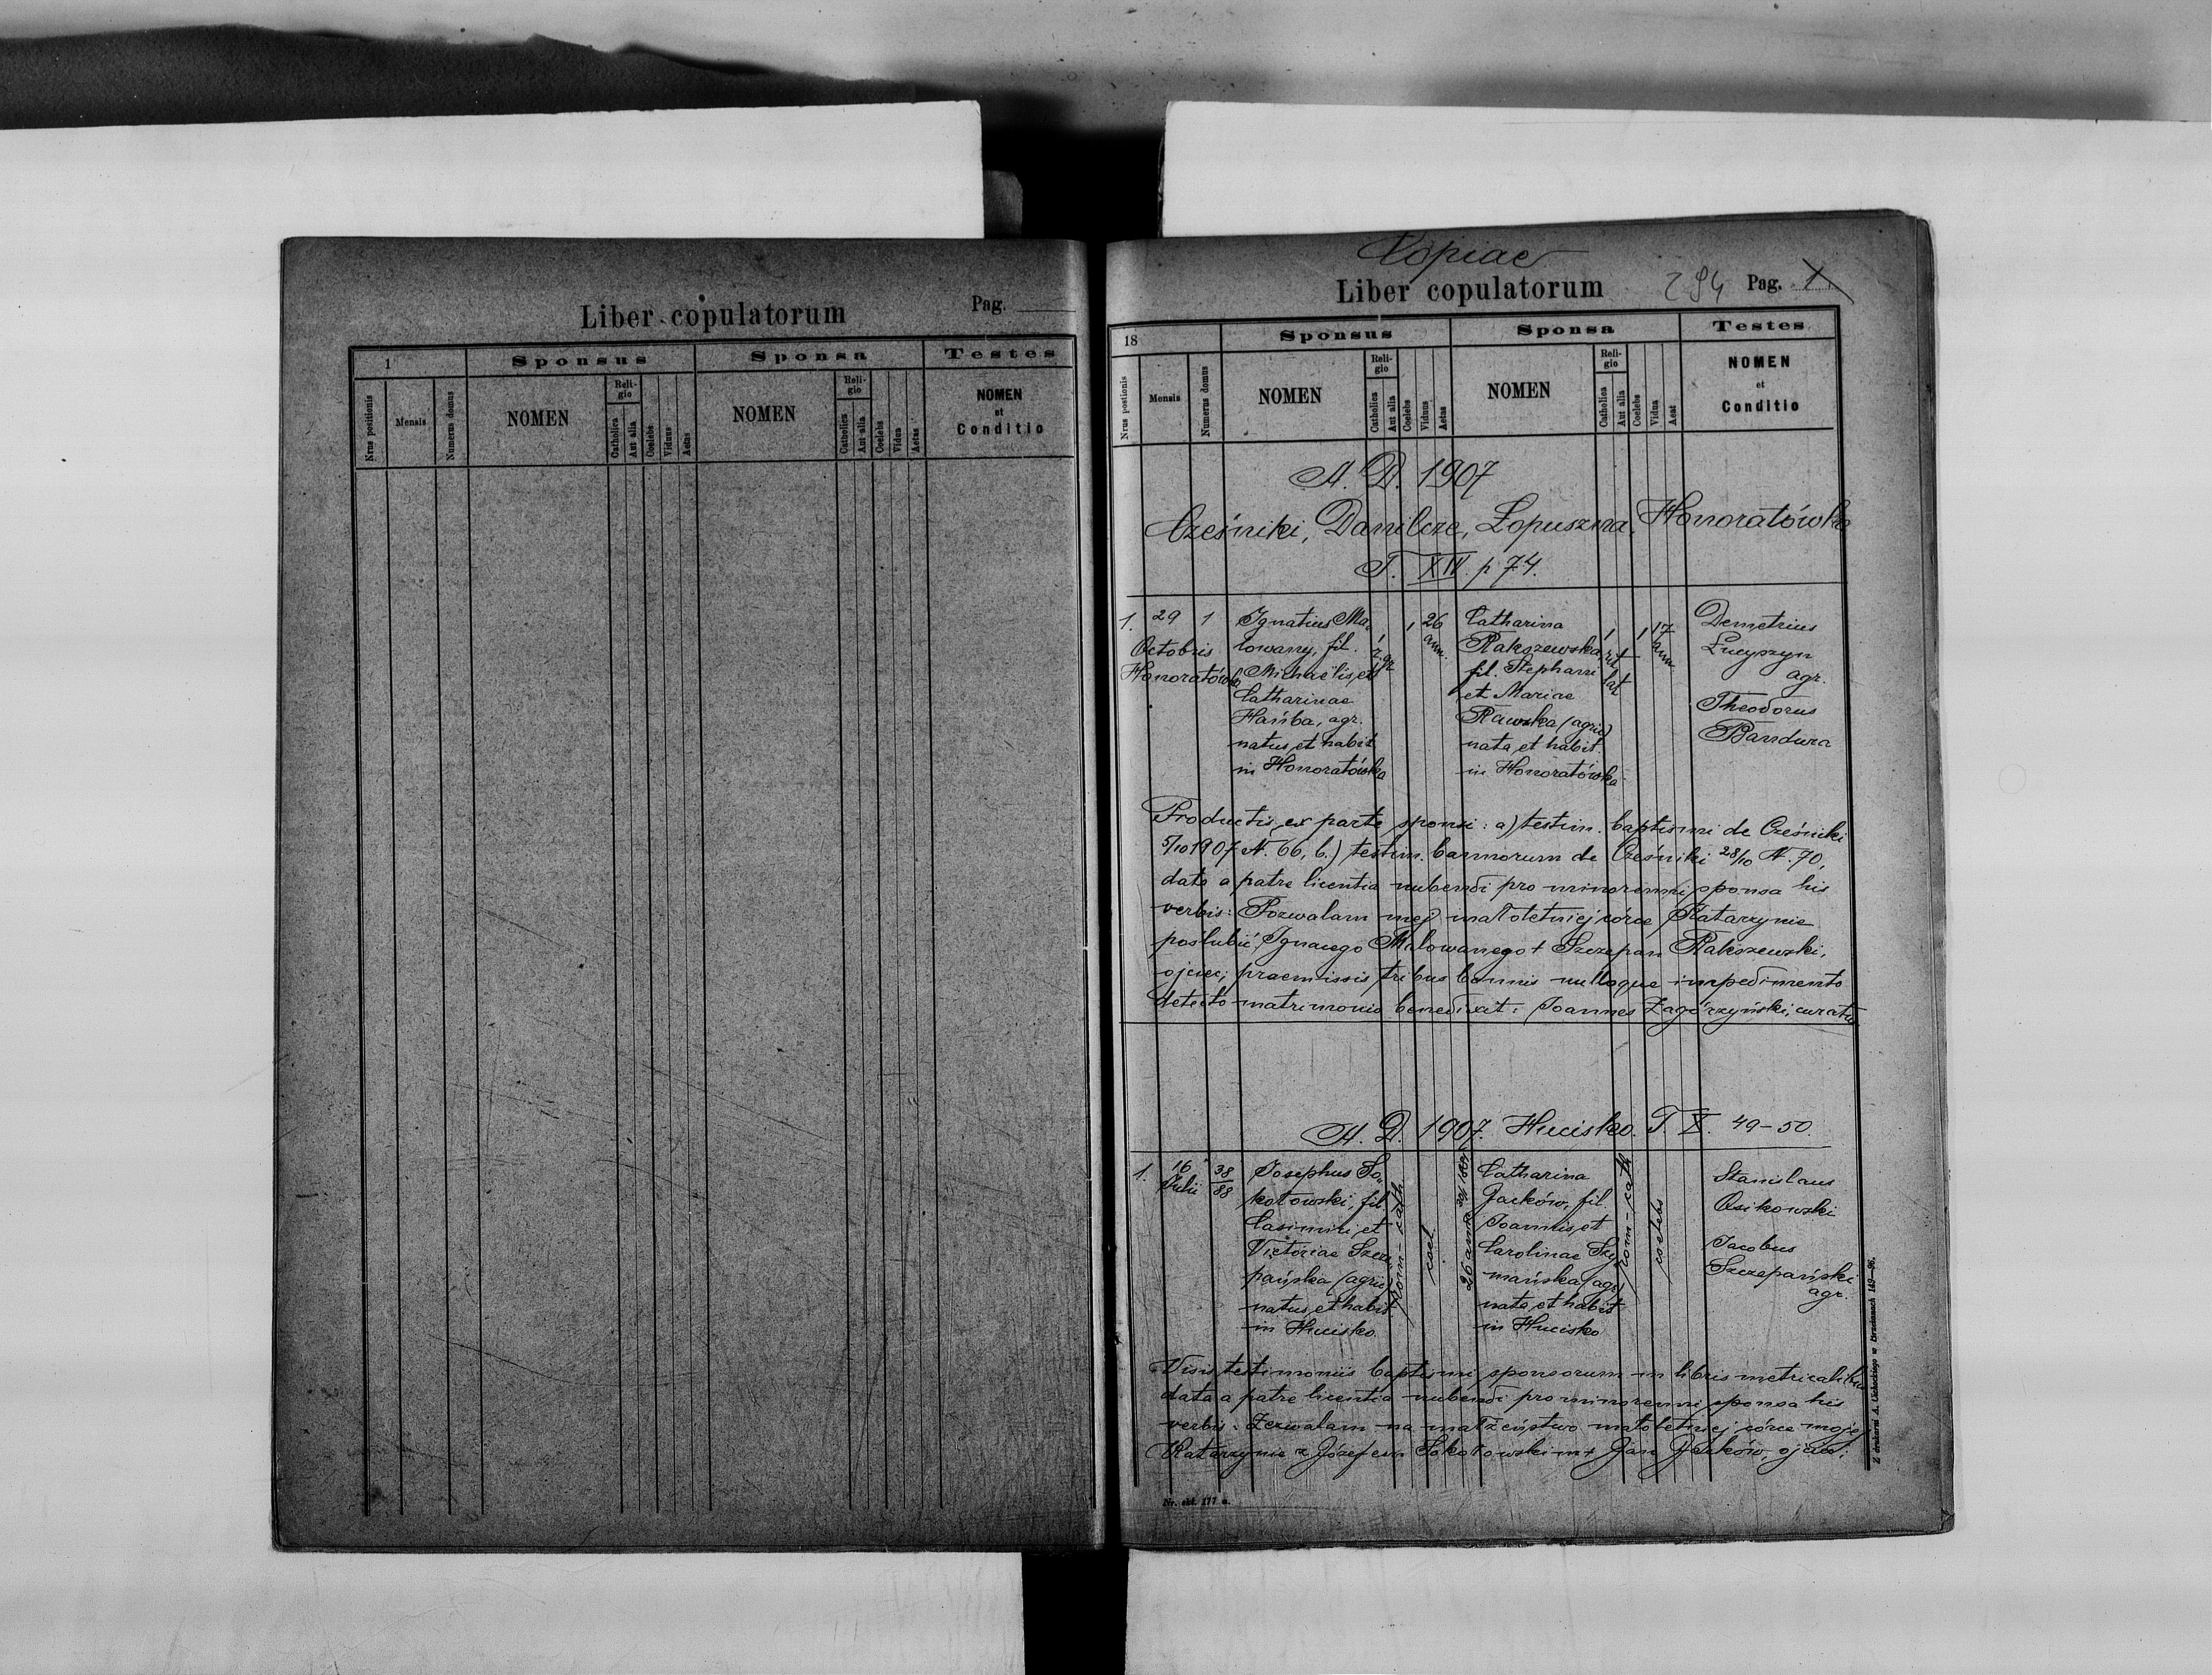 Liber copulatorum
Pag.
1
Sponsus
Sponsa
Testes
Nrus positionis
Mensis
Numerus domus
NOMEN
Religio
Catholica
Aut alia
Coelebs
Viduus
Aetas
NOMEN
Religio
Catholica
Aut alia
Coelebs
Vidua
Aetas
NOMEN
et
Conditio
Copiae
Liber copulatorum
294
Pag. 1
18
Sponsus
Sponsa
Testes
Nrus postionis
Mensis
Numerus domus
NOMEN
Religio
Catholica
Aut alia
Coelebs
Viduus
Aetas
NOMEN
Religio
Catholica
Aut alia
Coelebs
Vidua
Aeat
NOMEN
et
Conditio
A. D. 1907
Cześniki, Danilcze, Łopuszna, Honoratówka
T. XIV. p 74.
1.
29
Octobris
Honoratówka
1
Ignatius Ma-
lowany, fil.
Michaelis, et
Catharinae
Hańba, agr.
natus, et habit
in Honoratówka
1
r gr
1
26
ann.
Catharina
Rakszewska,
fil. Stephani
et Mariae
Rawska (agric)
nata, et habit.
in Honoratówka
1
rit
lat
1
17
ann
Demetrius
Łucyszyn
agr.
Theodorus
Bandura
Productis, ex parte sponsi: a) testim. baptismi de Cześniki
5/10 1907 N. 66, b.) testim. bannorum de Cześniki 28/10 N. 70,
data a patre licentia nubendi pro minorenni sponsa his
verbis: Pozwalam mej małoletniej córce Katarzynie
poslubić Ignacego Malowanego + Szczepan Rakszewski,
ojciec; praemissis tribus bannis nulloque impedimento
detecto matrimonio benedixit: Joannes Zagórzyński, curatus
A. D. 1907. Hucisko. T. X. 49-50.
1.
16
Julii
38
88
Josephus So-
kołowski, fil
Casimiri, et
Victoriae Szcze-
pańska (agric)
natus, et habit.
in Hucisko
rom-cath
coel.
Catharina
Jacków, fil,
Joannis, et
Carolinae Szy-
mańska (agr)
nata, et habit
in Hucisko
rom-cath
coelebs
Stanislaus
Osikowski
Jacobus
Szczepański
agr.
Visis testimoniis baptismi sponsorum in libris metricalibus
data a patre licentia nubendi pro minorenni sponsa his
verbis: Zezwalam na małżeństwo małoletniej córce mojej
Katarzynie z Józefem Sokołowskim + Jan Jacków, ojciec;
Nr. skł. 177 a.